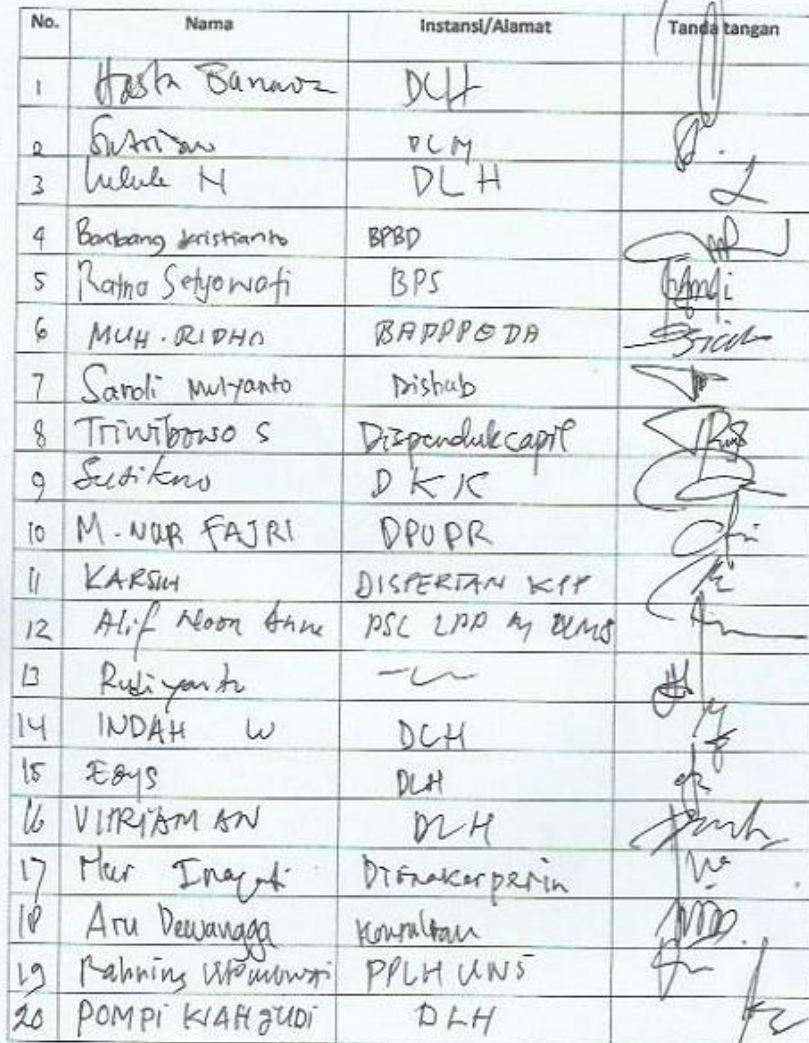 No. Nama Instansi/Alamat Tanda tangan
1 Hasta DLH
2 DLH
3 Luluk N DLH
4 Bambang Kristianto BPBD
5 Ratna Setyowati BPS
6 MUH. RIDHO BAPPPEDA
7 Sardi Mulyanto Dishub
8 Triwibowo S Dispendukcapil
9 Sutikno DKK
10 M. NUR FAJRI DPUPR
11 DISPERTAN KPP
12 Alif Noor Anna PSL LPPM UMS
13 Rudiyanto
14 INDAH W DLH
15 DLH
16 DLH
17 Nur Inayati Disnakerperin
18 Aru Dewangga Konsultan
19 PPLH UNS
20 POMPI WAHYUDI DLH